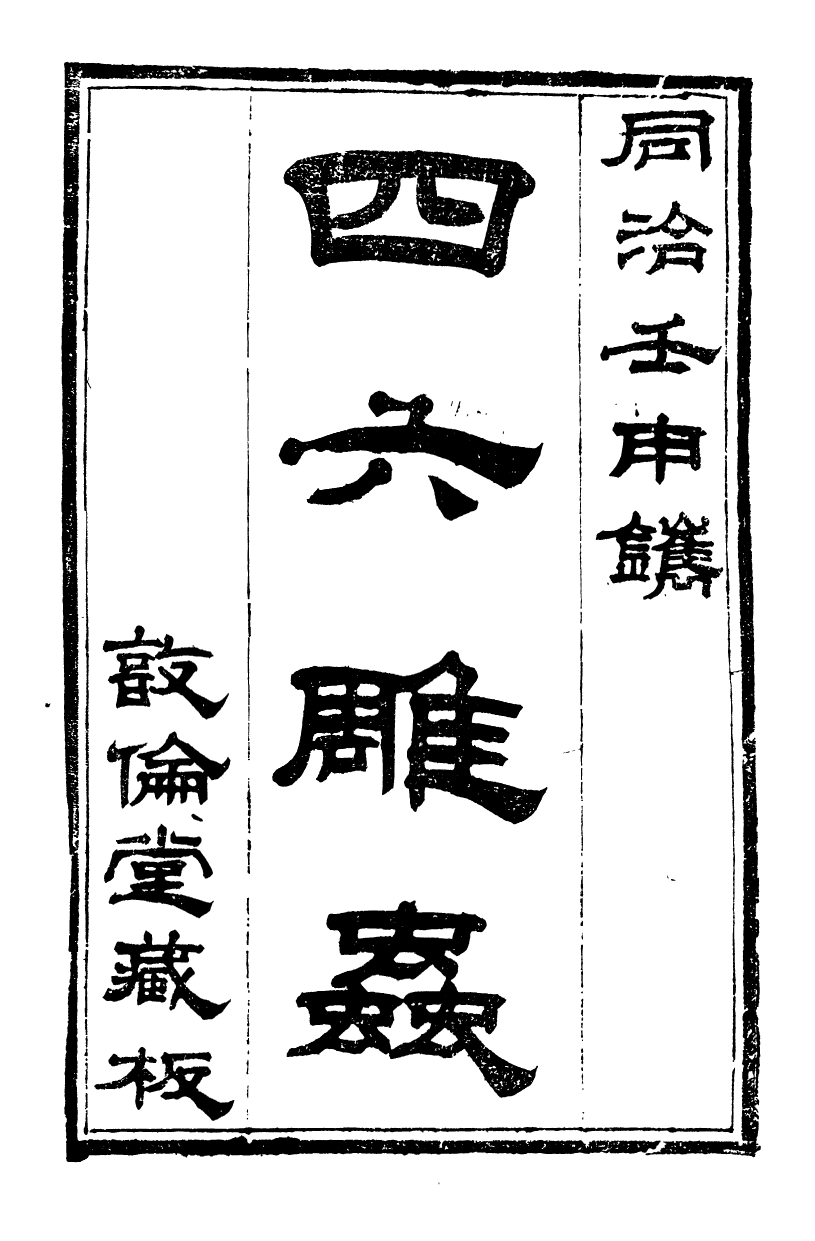 同治壬申鐫
四六雕蟲
敦倫堂藏板